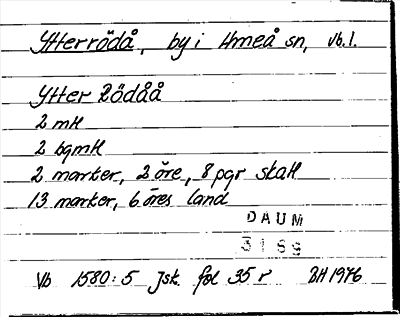 Ytterrödå, by i Umeå sn, Vb. l.
Ytter Rödåå
2 mtl
2 bgmtl
2 marker, 2 öre, 8 pgr skatt
13 marker, 6 öres land
DAUM
3189
Vb 1580:5 Jsk. fol 35 r BH 1976